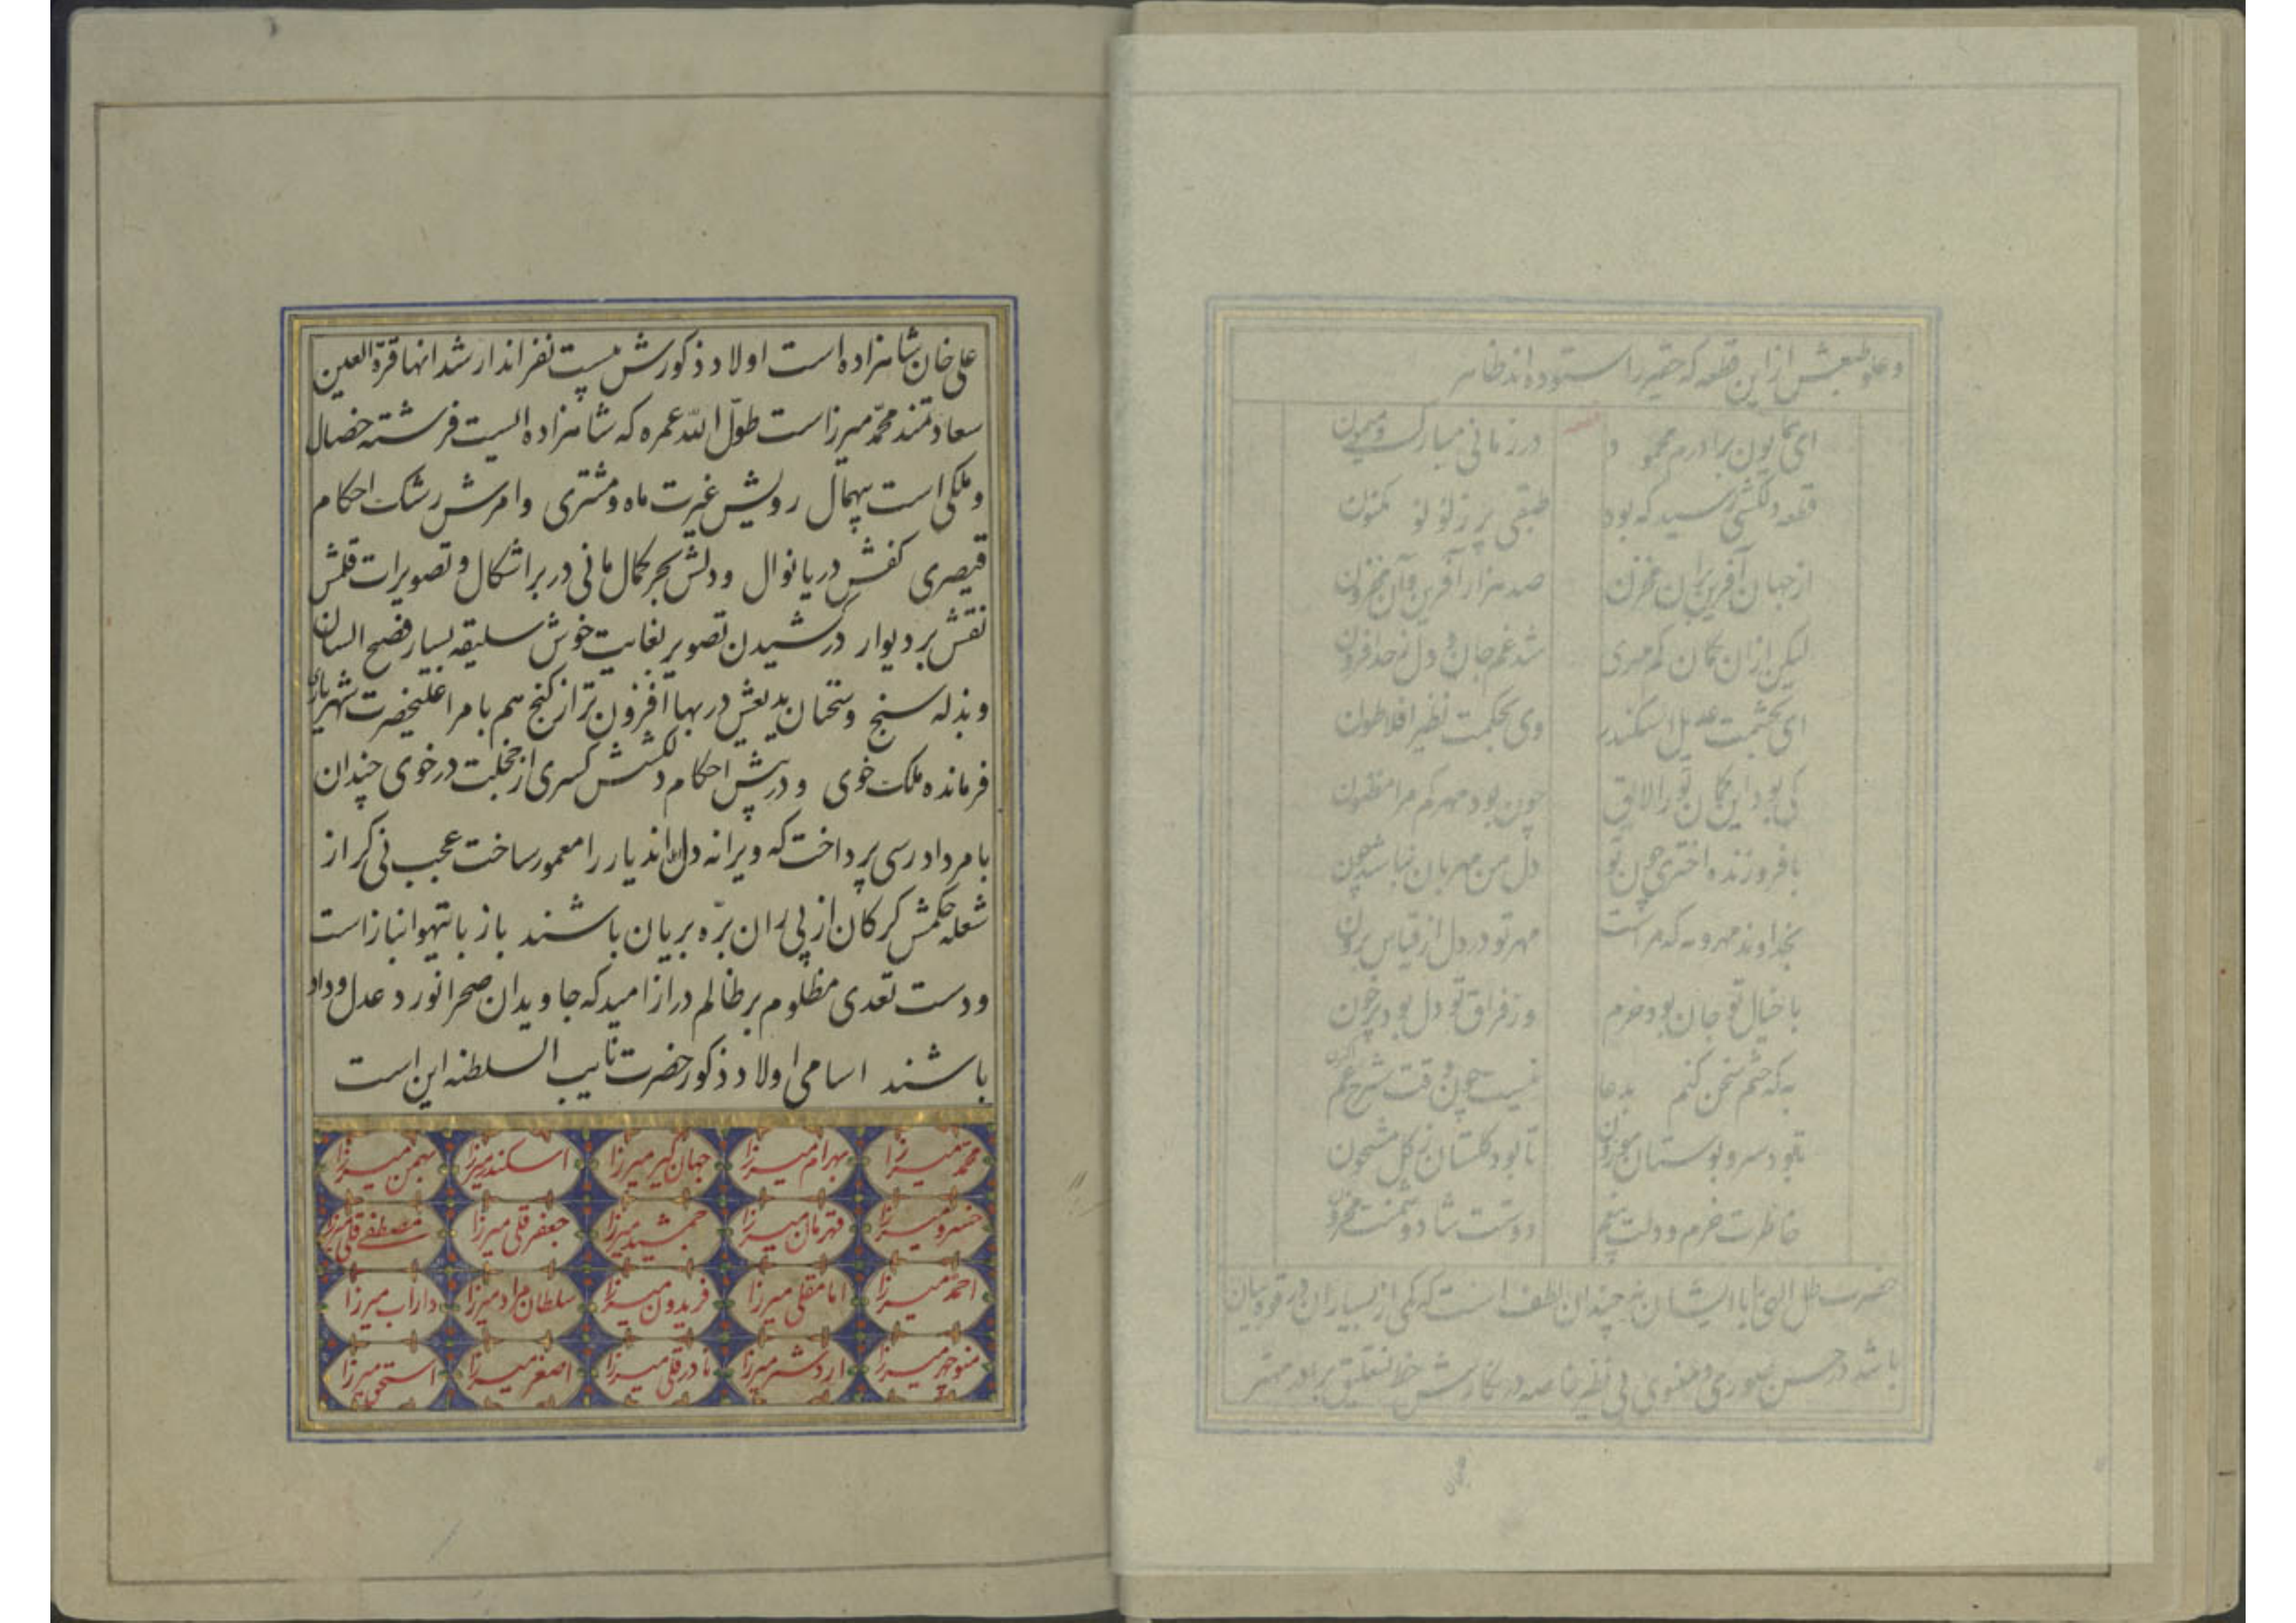 وعلو طبعش از این قطعه که حقیر را ستوده اند ظاهر
ای همایون برادرم محمود در زمانی مبارک و میمون
قطعه دلکشی رسید که بود طبقی پر ز لؤلؤ مکنون
از جهان آفرین بران مخزن صد هزار آفرین وآن مخزون
لیکن ازان کمان کم مهری شد غم جان و دل ز حد افزون
ای بحشمت عدیل اسکندر وی بحکمت نظیر افلاطون
کی بود این کمان تو را لایق چون بود مهر کم مرا مظنون
با فروزنده اختری چون تو دل من مهربان نباشد چون
بخداوند مهر و مه که مراست مهر تو در دل از قیاس برون
با خیال تو جان بود خرم وز فراق تو دل بود پرخون
به که ختم سخن کنم بدعا نیست چون وقت شرح غم اکنون
تا بود سرو بوستان موزون تا بود کلستان ز کل مشحون
خاطرت خرم و دلت بیغم دوستت شاد و دشمنت محزون
حضرت ظل الهی را با ایشان نه چندان لطف است که یکی از بسیاران در قوه بیان
باشد در حسن صوری و معنوی بی نظیر خاصه در نکارش خط نستعلیق برادر مهتر
علی خان شاهزاده است اولاد ذکورش بیست نفر اند ارشد انها قرة العین
سعادتمند محمد میرزاست طول الله عمره که شاهزاده ایست فرشته خصال
و ملکی است بیهمال رویش غیرت ماه و مشتری وامرش رشک احکام
قیصری کفش دریا نوال و دلش بحر کمال مانی در بر اشکال و تصویرات قلمش
نقش بر دیوار در کشیدن تصویر بغایت خوش سلیقه بسیار فصیح اللسان
و بذله سنج و سخنان بدیعش در بها افزون تر از کنج هم بامر اعلیحضرت شهریاری
فرمانده ملک خوی و در پیش احکام دلکشش کسری از خجلت در خوی چندان
بامر دادرسی پرداخت که ویرانه دل اندیار را معمور ساخت عجب نی کر از
شعله حکمش کرکان از پی ران بره بریان باشند باز با تیهو انباز است
ودست تعدی مظلوم بر ظالم دراز امید که جاویدان صحرا نورد عدل و داد
باشند اسامی اولاد ذکور حضرت نایب السلطنه این است
محمد میرزا بهرام میرزا جهان کیر میرزا اسکندر میرزا بهمن میرزا
خسرو میرزا قهرمان میرزا جمشید میرزا جعفر قلی میرزا مصطفی قلی میرزا
احمد میرزا امامقلی میرزا فریدون میرزا سلطان مراد میرزا داراب میرزا
منوچهر میرزا اردشیر میرزا نادر قلی میرزا اصغر میرزا اسحق میرزا